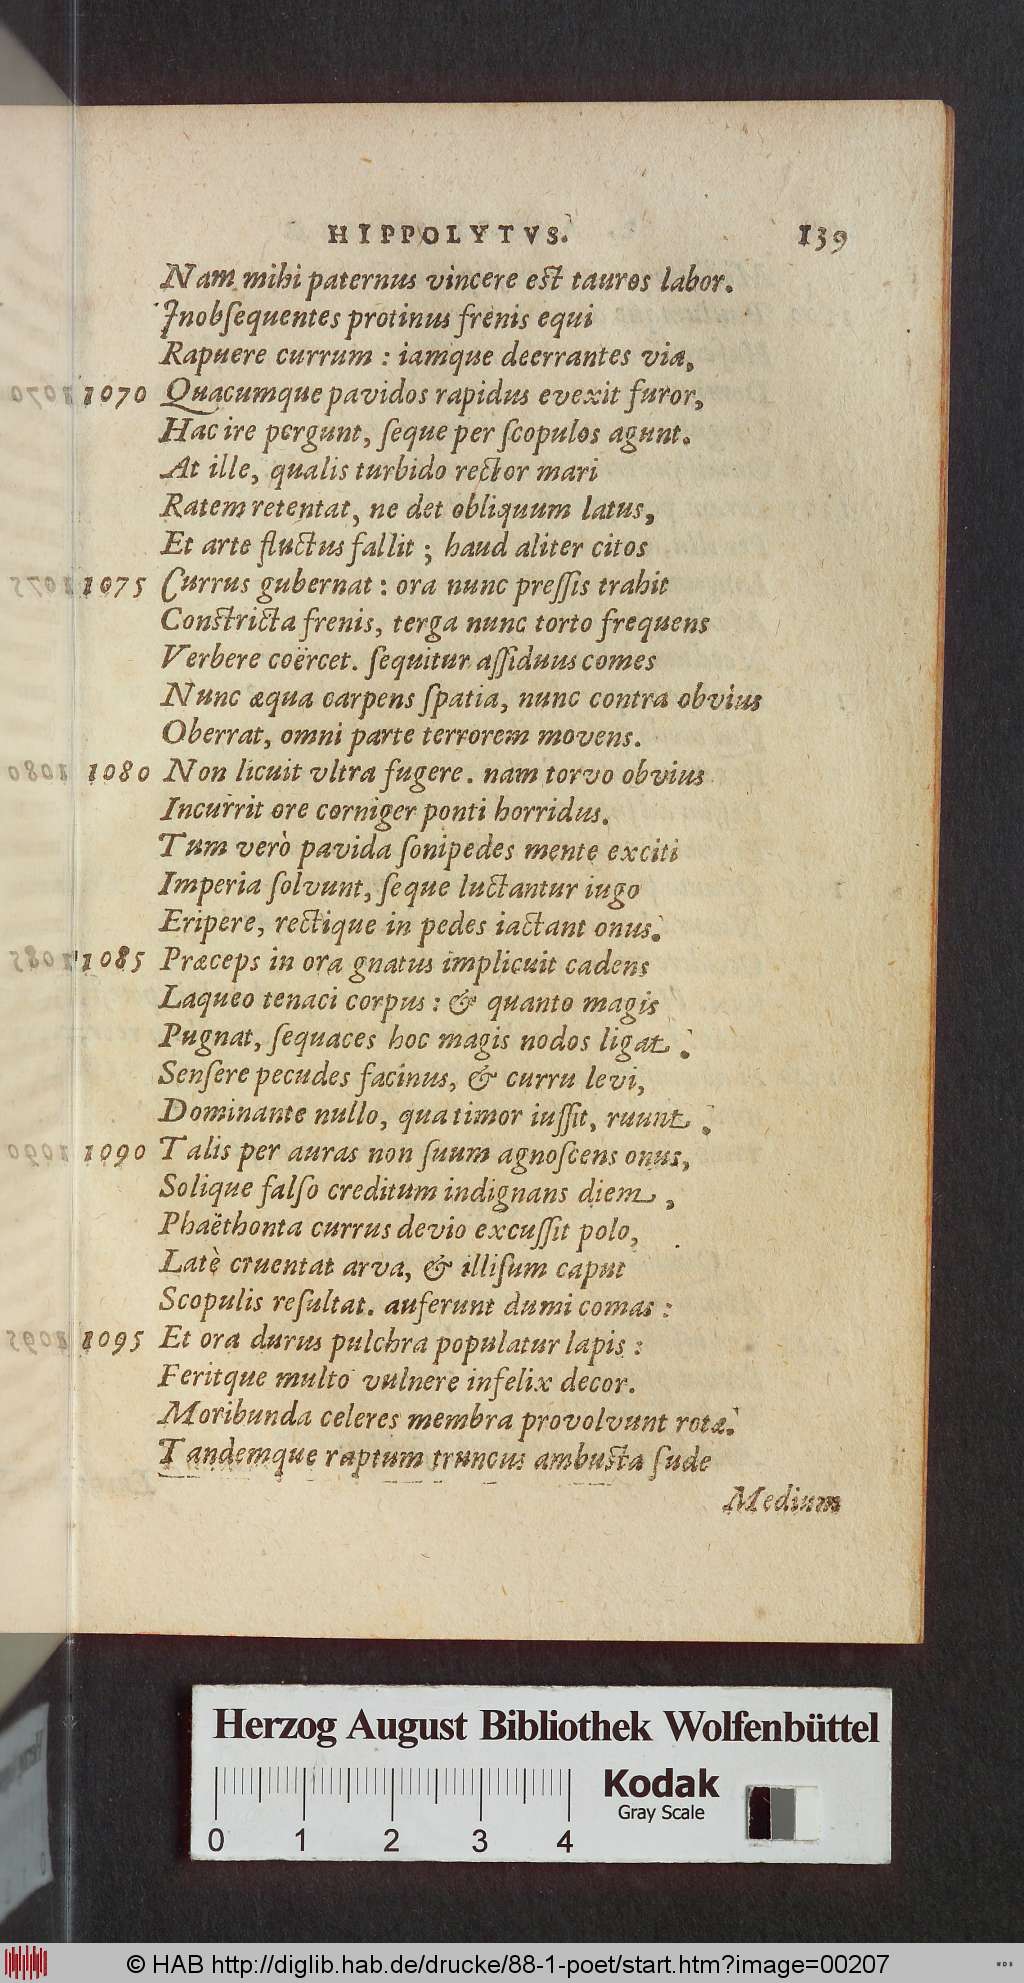 HIPPOLYTVS. 139
Nam mihi paternus vincere est tauros labor.
Inobſequentes protinus frenis equi
Rapuere currum : iamque deerrantes via,
1070 Quacumque pavidos rapidus evexit furor,
Hac ire pergunt, ſeque per ſcopulos agunt.
At ille, qualis turbido rector mari
Ratem retentat, ne det obliquum latus,
Et arte fluctus fallit ; haud aliter citos
1075 Currus gubernat : ora nunc preſſis trahit
Constricta frenis, terga nunc torto frequens
Verbere coërcet. ſequitur aſſiduus comes
Nunc æqua carpens ſpatia, nunc contra obvius
Oberrat, omni parte terrorem movens.
1080 Non licuit vltra fugere. nam torvo obvius
Incurrit ore corniger ponti horridus.
Tum verò pavida ſonipedes mente exciti
Imperia ſolvunt, ſeque luctantur iugo
Eripere, rectique in pedes iactant onus.
1085 Præceps in ora gnatus implicuit cadens
Laqueo tenaci corpus : & quanto magis
Pugnat, ſequaces hoc magis nodos ligat.
Senſere pecudes facinus, & curru levi,
Dominante nullo, qua timor iuſſit, ruunt.
1090 Talis per auras non ſuum agnoſcens onus,
Solique falſo creditum indignans diem,
Phaëthonta currus devio excuſſit polo,
Latè cruentat arva, & illiſum caput
Scopulis reſultat. auferunt dumi comas :
1095 Et ora durus pulchra populatur lapis :
Feritque multo vulnere infelix decor.
Moribunda celeres membra provolvunt rotæ.
Tandemque raptum truncus ambusta ſude
Medium
Herzog August Bibliothek Wolfenbüttel
Kodak
Gray Scale
0 1 2 3 4
© HAB http://diglib.hab.de/drucke/88-1-poet/start.htm?image=00207